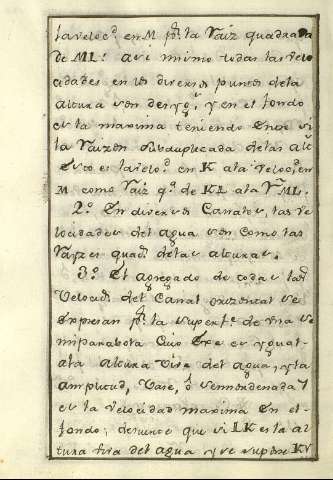 la veloc.d en M p.r la Raiz quadrada
de ML: asi mismo todas las velo
cidades en los diversos puntos de la
altura son desyg.s, y en el fondo
es la maxima teniendo entre si
la Raizon subduplicada de las alt
Esto es la velo.d en K a la veloc.d en
M como Raiz q.a de KL a la R.z ML.
2.º En diversos Canales, las ve
locidades del agua son como las
Rayzes quad.s de las alturas.
3.º El agregado de todas las
Velocid.s del Canal orizontal se
expresan p.r la superf.e de una se
miparabola cuio Exe es ygual
a la altura viva del agua, y la
amplitud, Vase, ó semiordenada
es la velocidad maxima en el
fondo; desuerte que si LK es la al
tura viva del agua y se supone KV